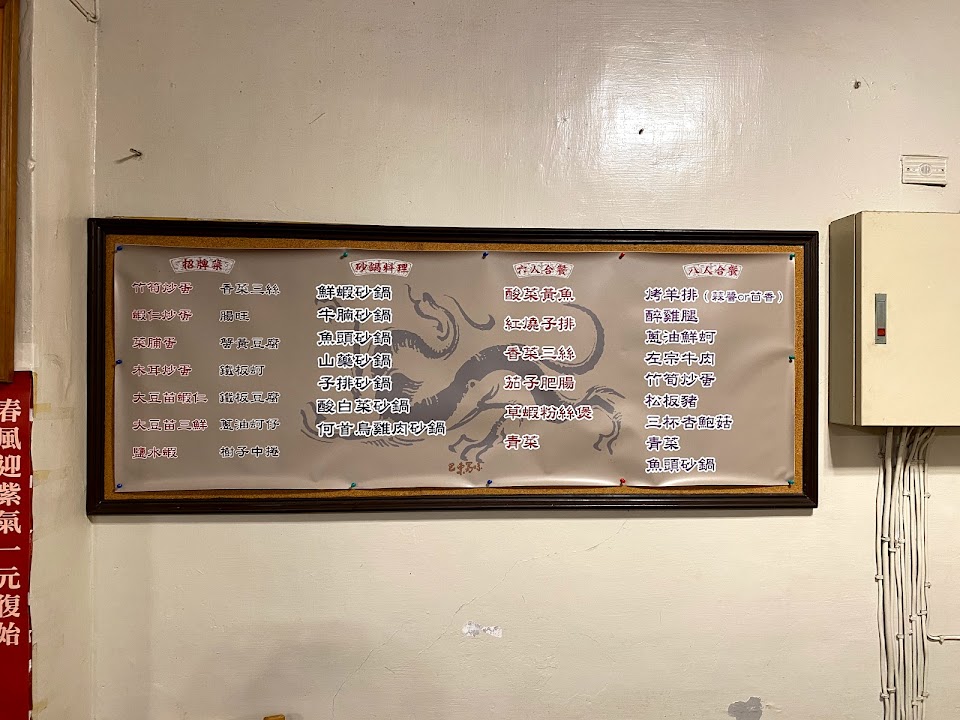 招牌菜
竹筍炒蛋 香菜三絲
蝦仁炒蛋 腸旺
菜脯蛋 蟹黃豆腐
木耳炒蛋 鐵板蚵
大豆苗蝦仁 鐵板豆腐
大豆苗三鮮 蔥油蚵仔
鹽水蝦 樹子中捲
砂鍋料理
鮮蝦砂鍋
牛腩砂鍋
魚頭砂鍋
山藥砂鍋
子排砂鍋
酸白菜砂鍋
何首烏雞肉砂鍋
六人合餐
酸菜黃魚
紅燒子排
香菜三絲
茄子肥腸
草蝦粉絲煲
青菜
八人合餐
烤羊排（蒜醬or茴香）
醉雞腿
蔥油鮮蚵
左宗牛肉
竹筍炒蛋
松板豬
三杯杏鮑菇
青菜
魚頭砂鍋
春風迎紫氣一元復始